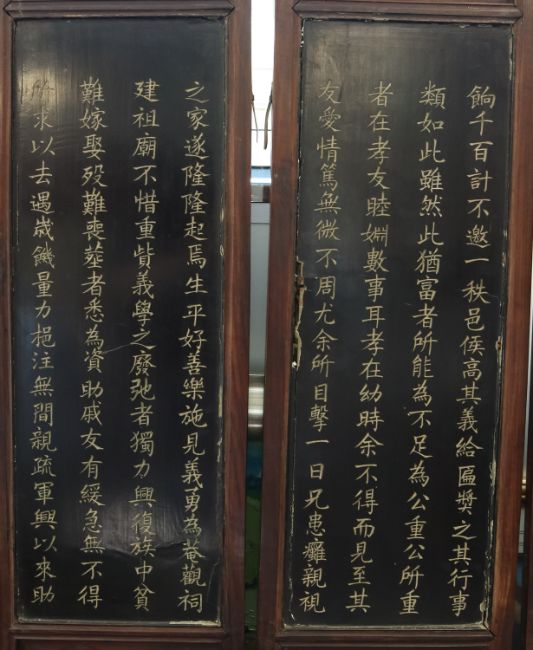 之家遂隆隆起焉生平好善樂施見義勇為葺觀祠
建祖廟不惜重貲義學之廢弛者獨力興復族中貧
難嫁娶歿難喪葬者悉為資助戚友有緩急無不得
求以去遇歲饑量力挹注無間親疏軍興以來助
餉千百計不邀一秩邑侯高其義給匾獎之其行事
類如此雖然此猶富者所能為不足為公重公所重
者在孝友睦婣數事耳孝在幼時余不得而見至其
友愛情篤無微不周尤余所目擊一日兄患癰親視